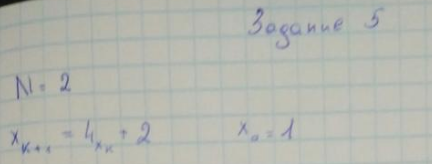 Задание 5
N = 2
xₖ₊₁ = 4xₖ + 2 x₀ = 1